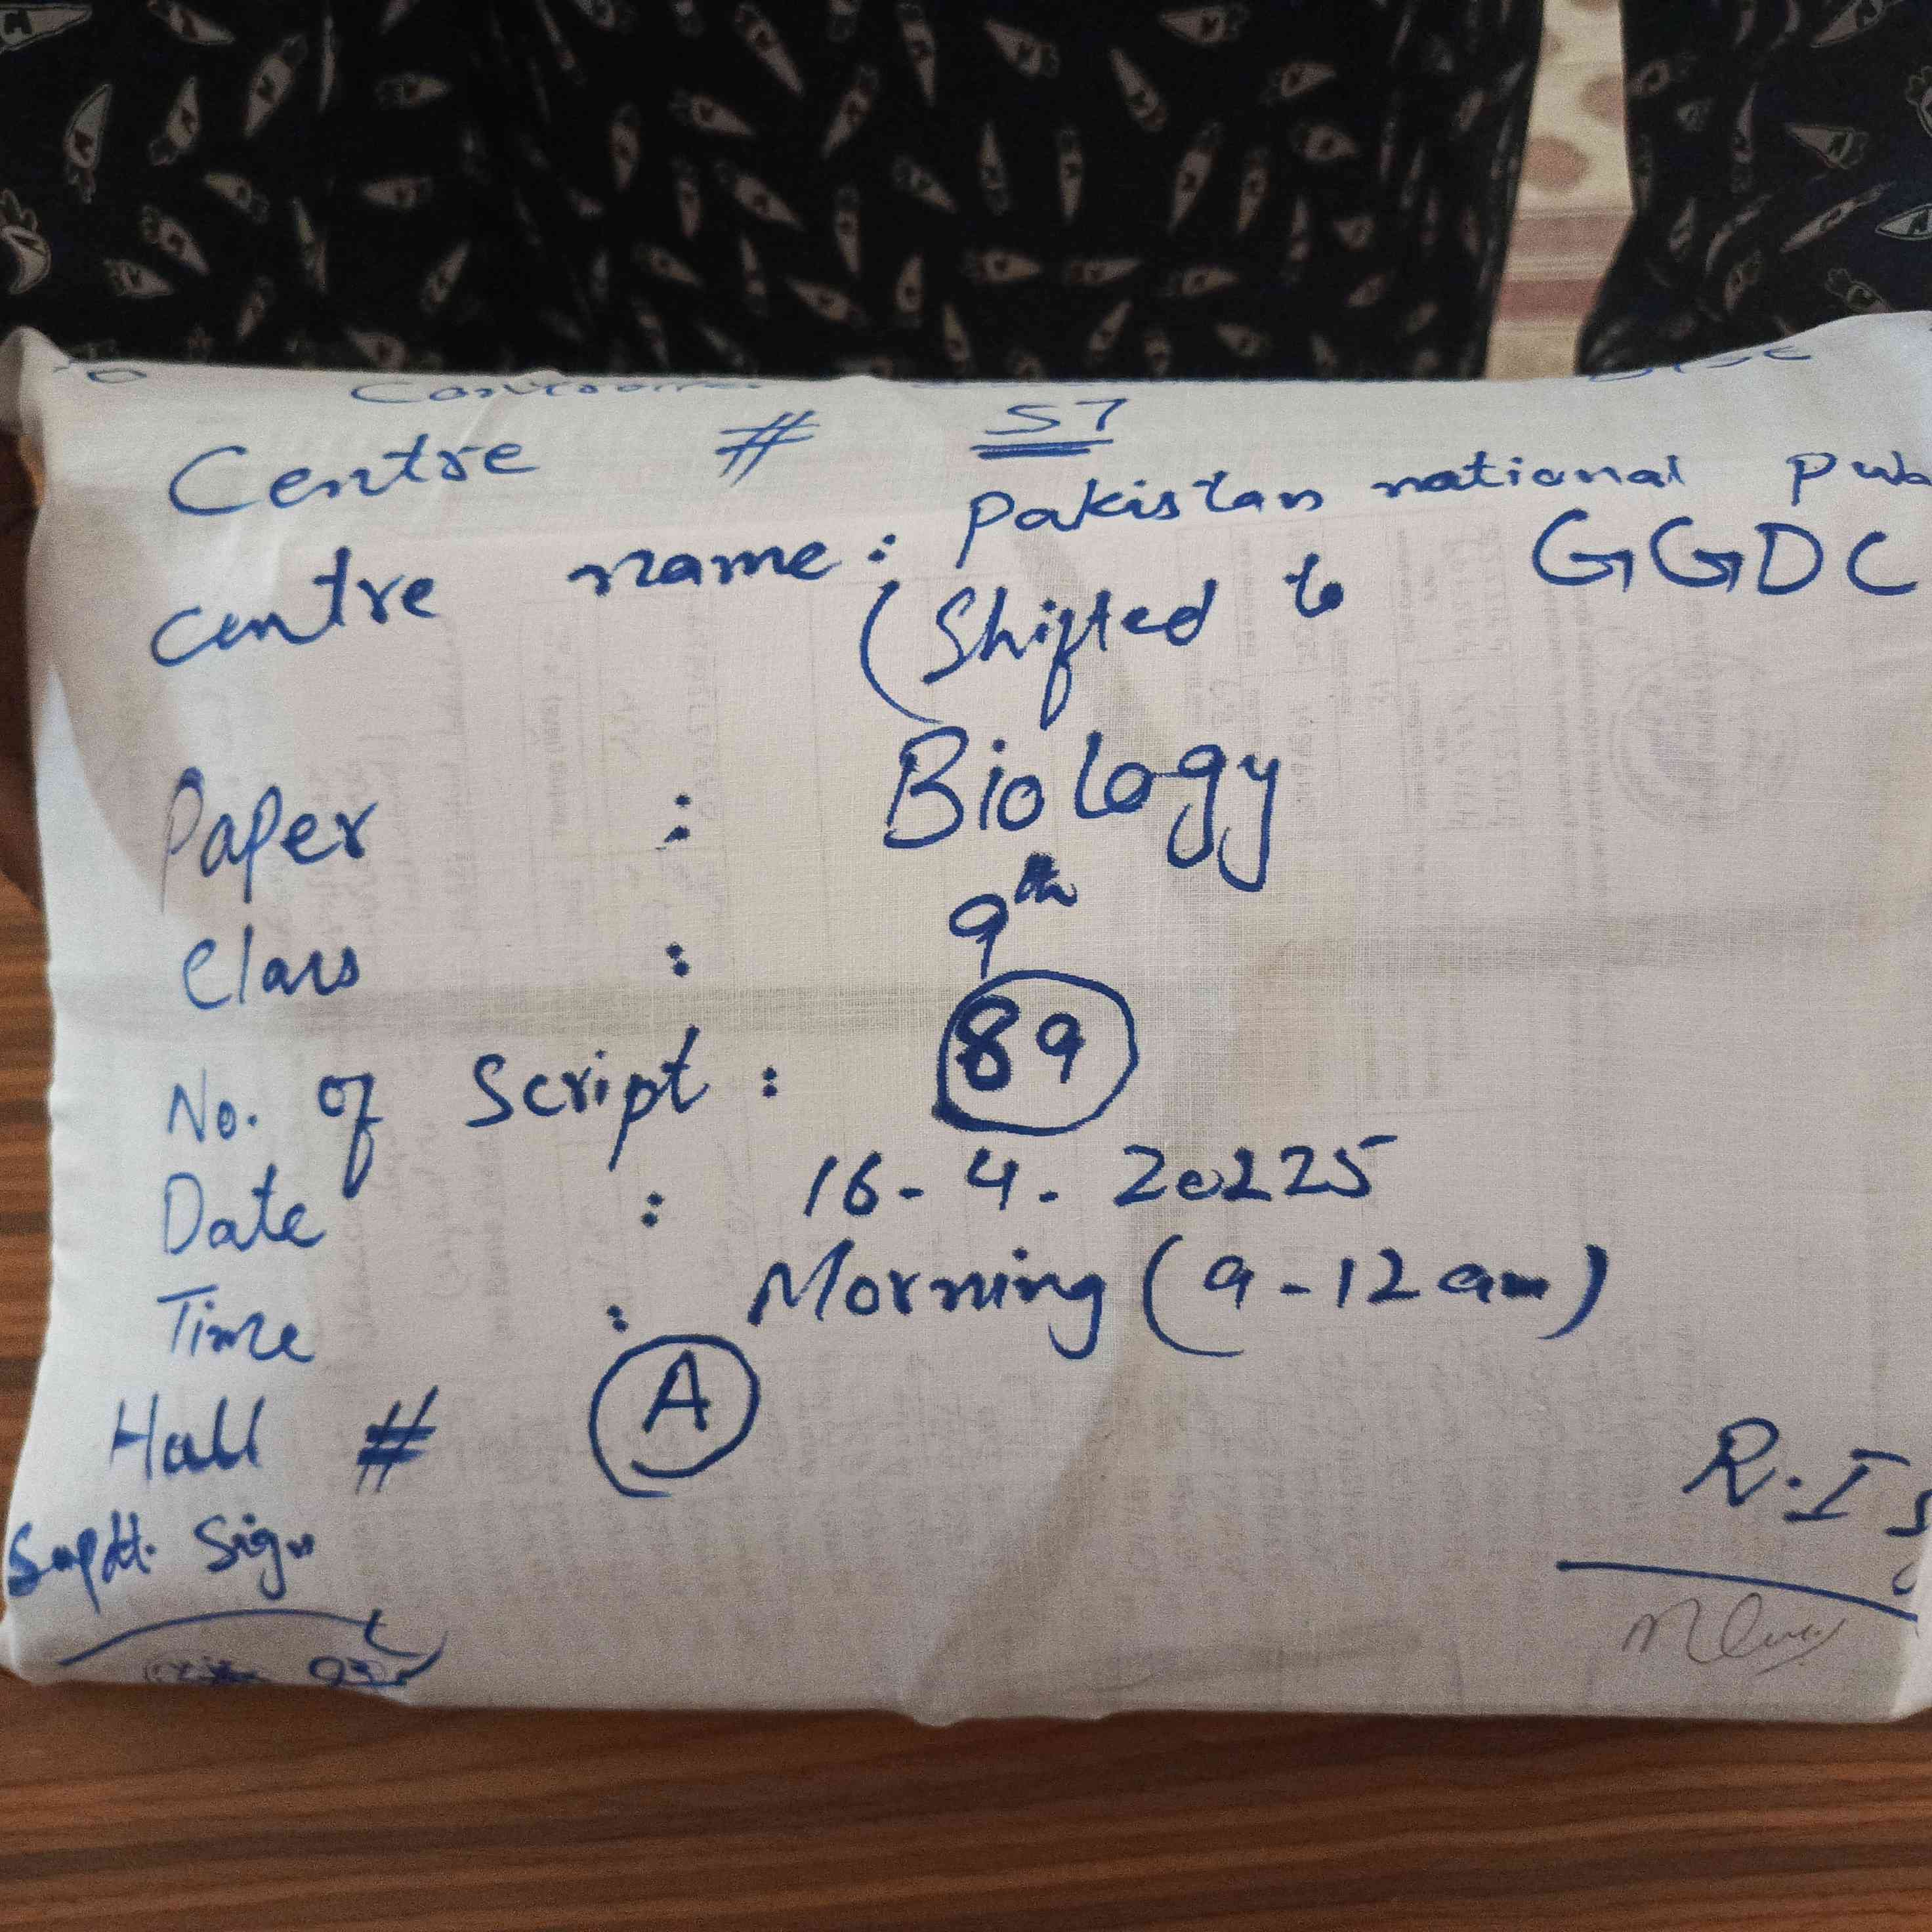 Centre # 57
Centre name : Pakistan national Pub
(Shifted to GGDC
Paper : Biology
Class : 9th
No. of Script : 89
Date : 16-4-20225
Time : Morning (9-12 am)
Hall # A
Supdt. Sign
R.I